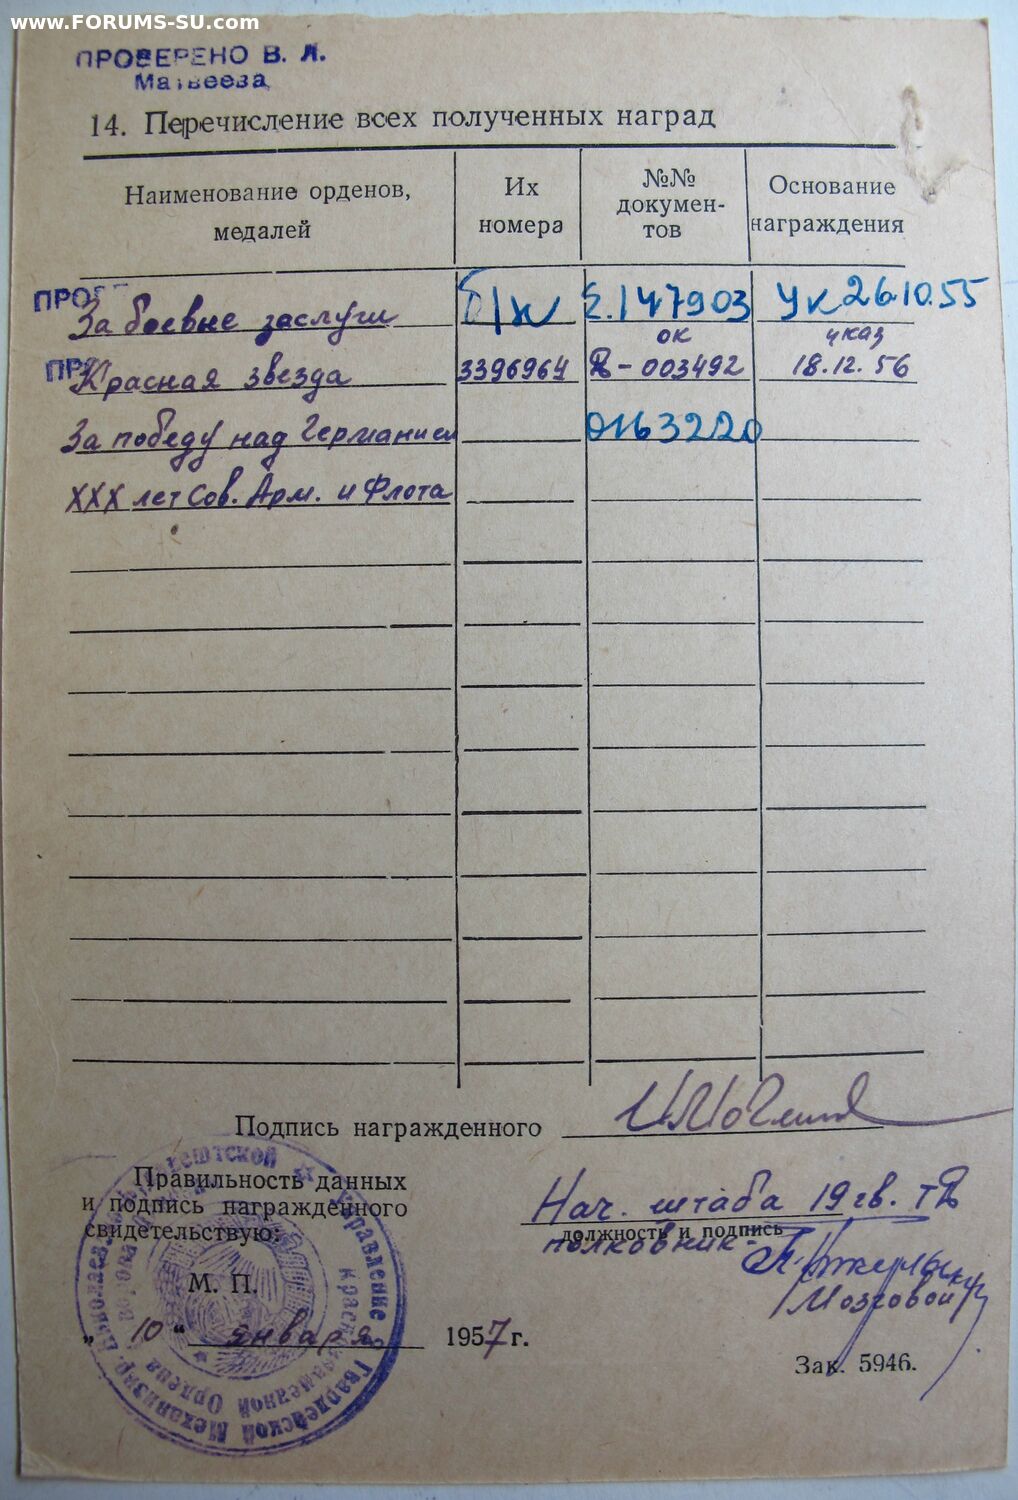 www.FORUMS-SU.com
ПРОВЕРЕНО В. Л.
Матвеева
14. Перечисление всех полученных наград
Наименование орденов, медалей
Их номера
№№ докумен-тов
Основание награждения
За боевые заслуги б/н 147903 Ук 26.10.55
Красная звезда 3396964 ок - 003492 указ 18.12.56
За победу над Германией 0163220
XXX лет Сов. Арм. и Флота
Подпись награжденного
Правильность данных
и подпись награжденного
свидетельствую:
Нач. штаба 19 гв. тд
должность и подпись
полковник -
Мозговой
М. П.
„10“ января 1957 г.
Зак. 5946.
Управление Гвардейской Механизир. Николаевско-Будапештской Краснознаменной Ордена